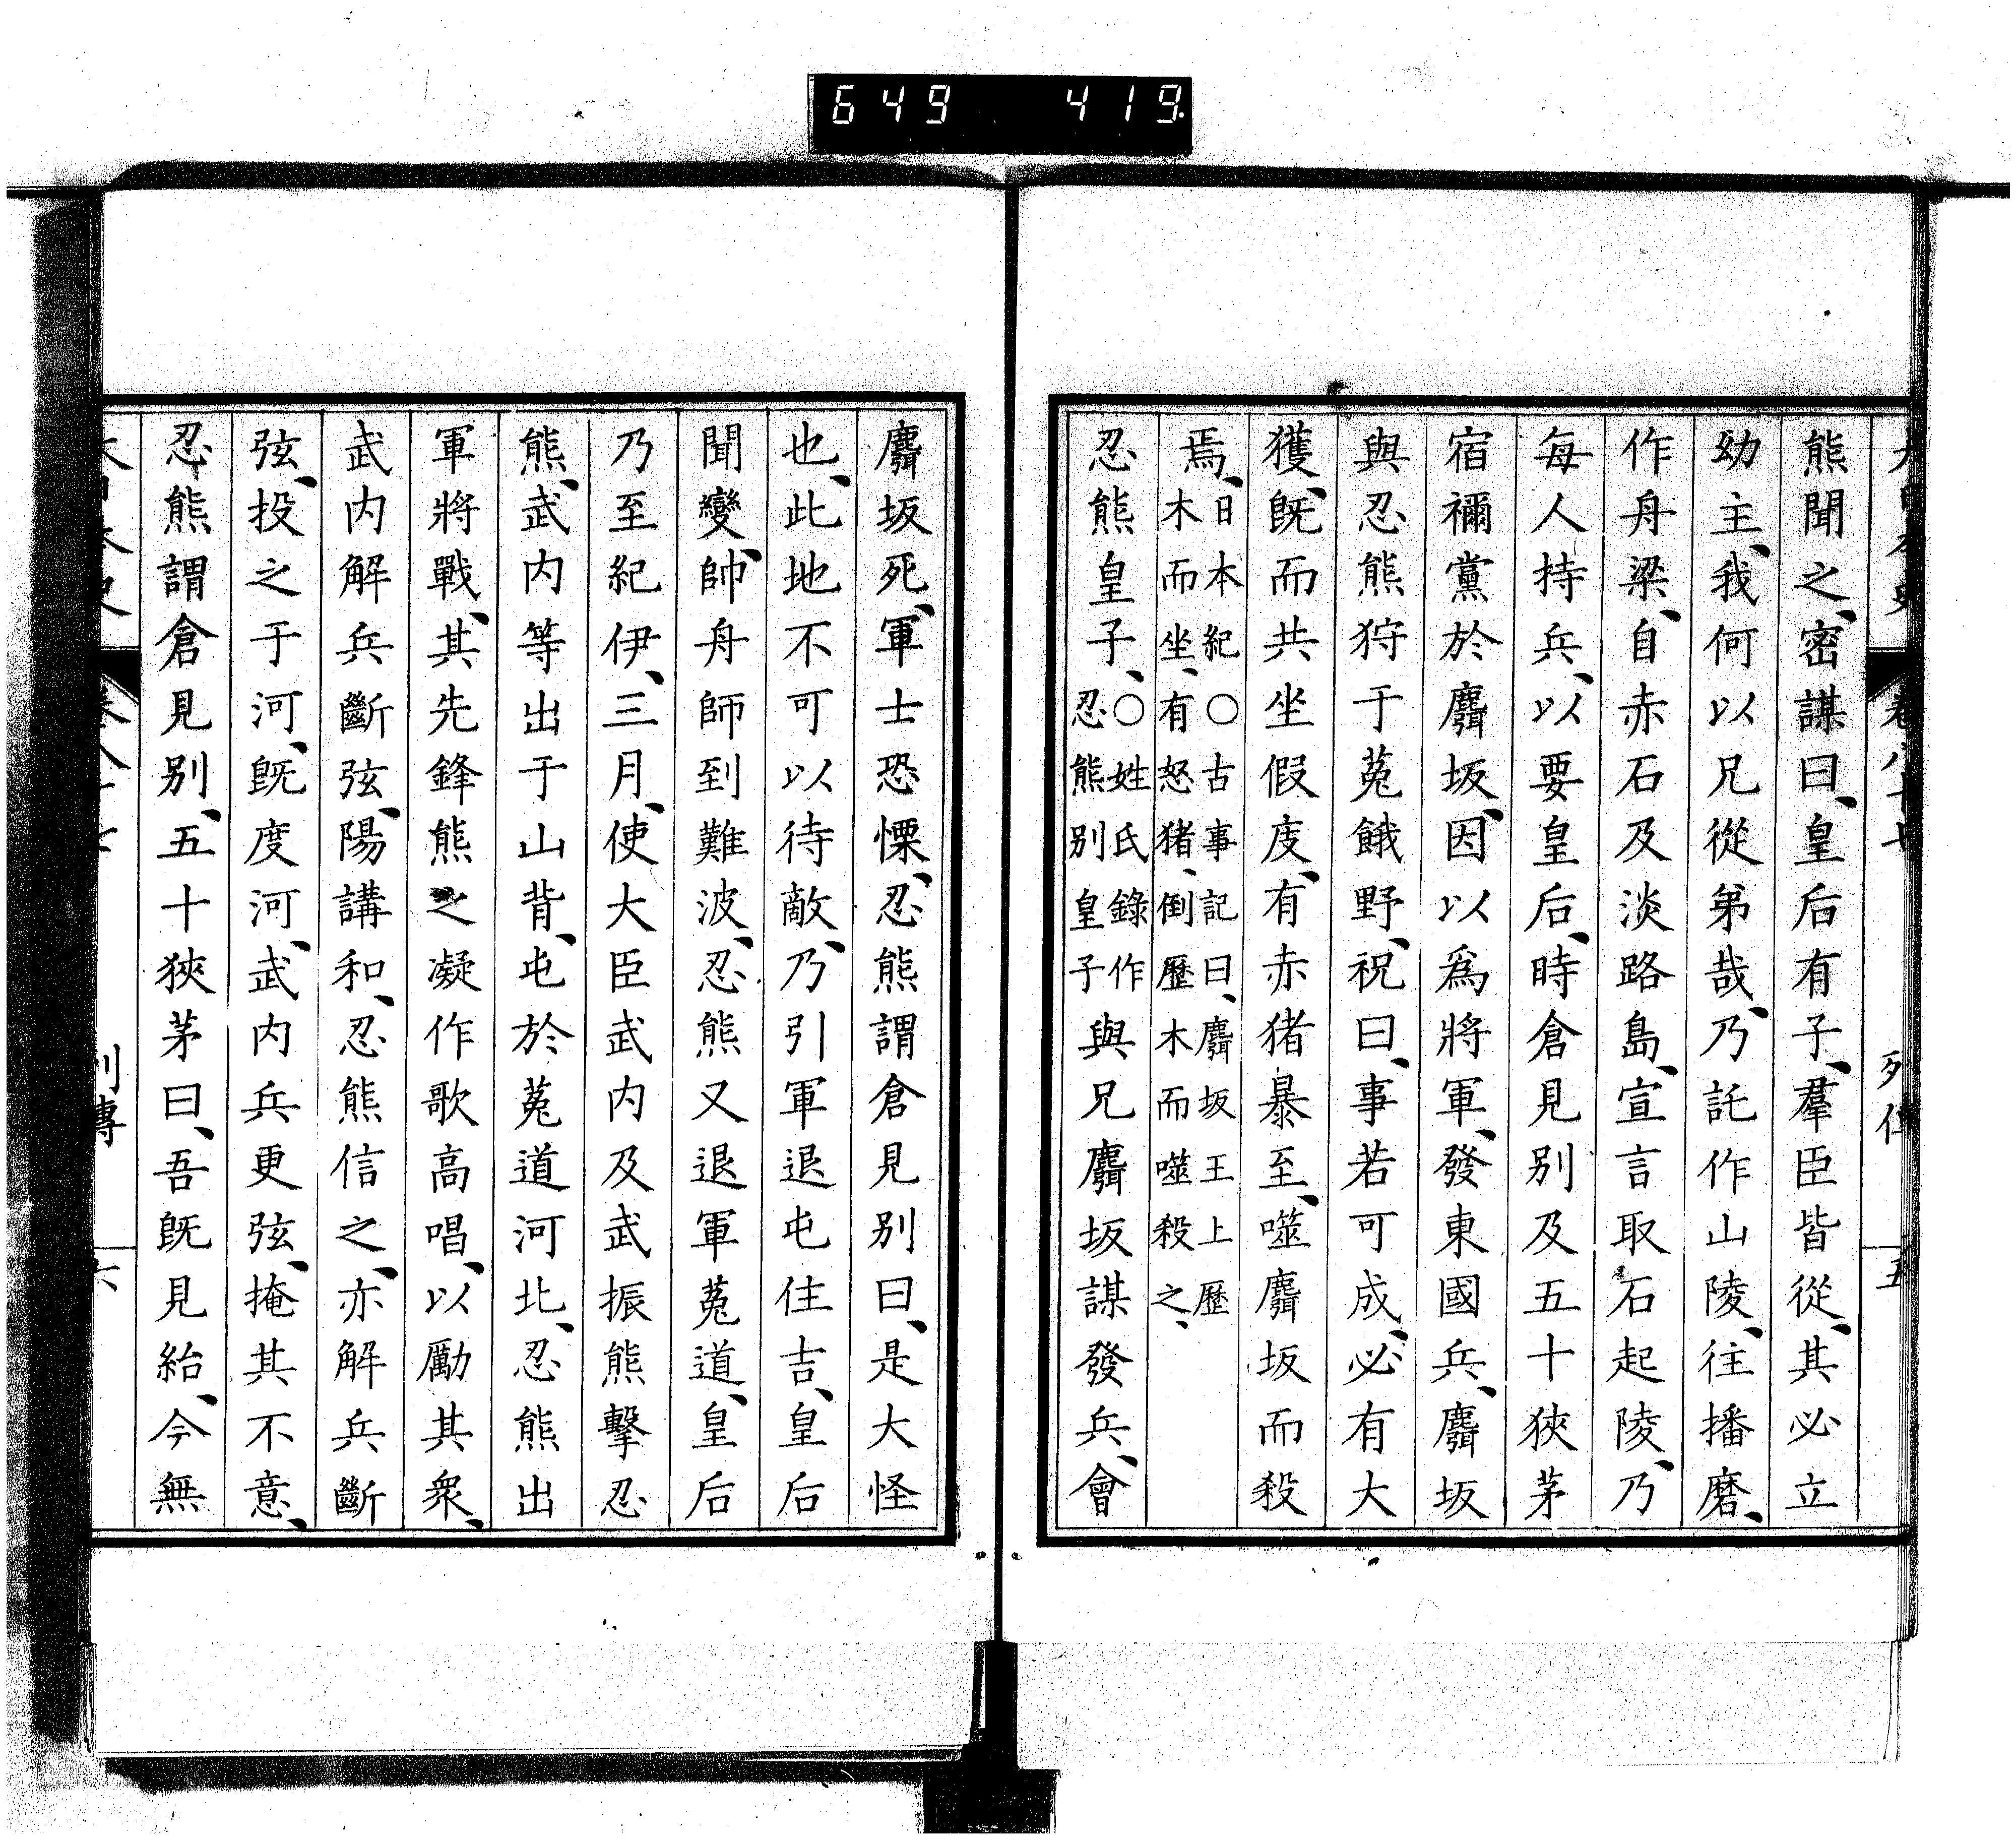 649 419.
熊聞之、密謀曰、皇后有子、羣臣皆從、其必立
幼主、我何以兄從弟哉、乃託作山陵、往播磨、
作舟梁、自赤石及淡路島、宣言取石起陵、乃
每人持兵、以要皇后、時倉見別及五十狹茅
宿禰黨於麛坂、因以爲將軍、發東國兵、麛坂
與忍熊狩于菟餓野、祝曰、事若可成、必有大
獲、旣而共坐假庪、有赤猪暴至、噬麛坂而殺
焉、日本紀〇古事記曰、麛坂王上歷
木而坐、有怒猪、倒歷木而噬殺之、
忍熊皇子、〇姓氏錄作
忍熊別皇子與兄麛坂謀發兵、會
麛坂死、軍士恐慄、忍熊謂倉見別曰、是大怪
也、此地不可以待敵、乃引軍退屯住吉、皇后
聞變、帥舟師到難波、忍熊又退軍菟道、皇后
乃至紀伊、三月、使大臣武内及武振熊擊忍
熊、武内等出于山背、屯於菟道河北、忍熊出
軍將戰、其先鋒熊之凝作歌高唱、以勵其衆、
武内解兵斷弦、陽講和、忍熊信之、亦解兵斷
弦、投之于河、旣度河、武内兵更弦、掩其不意、
忍熊謂倉見別、五十狹茅曰、吾旣見紿、今無